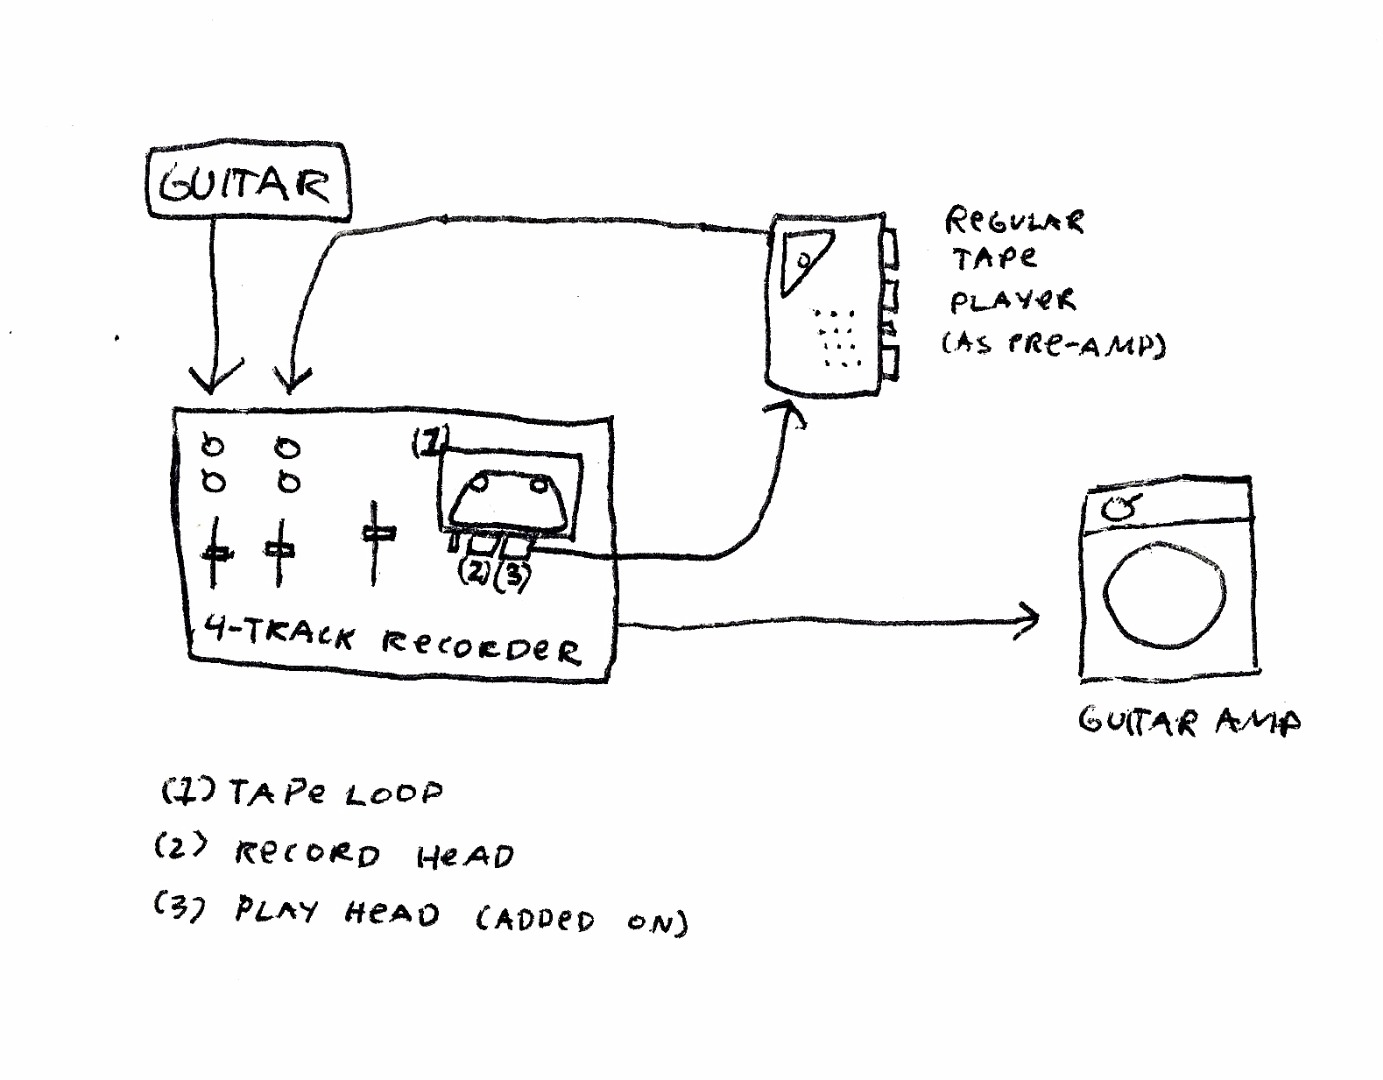 GUITAR
REGULAR
TAPE
PLAYER
(AS PRE-AMP)
(1)
(2) (3)
4-TRACK RECORDER
GUITAR AMP
(1) TAPE LOOP
(2) RECORD HEAD
(3) PLAY HEAD (ADDED ON)